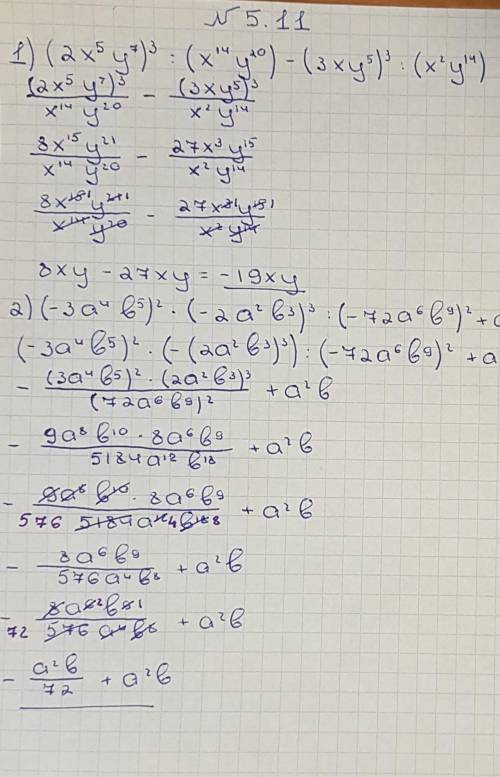 N 5.11
1) (2x⁵y⁷)³ : (x¹⁴y²⁰) - (3xy⁵)³ : (x²y¹⁴)
(2x⁵y⁷)³ / x¹⁴y²⁰ - (3xy⁵)³ / x²y¹⁴
8x¹⁵y²¹ / x¹⁴y²⁰ - 27x³y¹⁵ / x²y¹⁴
8x¹⁵¹y²¹¹ / x¹⁴y²⁰ - 27x³¹y¹⁵¹ / x²y¹⁴
8xy - 27xy = -19xy
2) (-3a⁴b⁵)² · (-2a²b³)³ : (-72a⁶b⁹)² + a
(-3a⁴b⁵)² · (-(2a²b³)³) : (-72a⁶b⁹)² + a
- (3a⁴b⁵)² · (2a²b³)³ / (72a⁶b⁹)² + a²b
- 9a⁸b¹⁰ · 8a⁶b⁹ / 5184a¹²b¹⁸ + a²b
- 9a⁸b¹⁰ · 8a⁶b⁹ / 576 5184a¹²4b¹⁸8 + a²b
- 8a⁶b⁹ / 576a⁴b⁸ + a²b
- 8a⁶²b⁹¹ / 72 576a⁴b⁸ + a²b
- a²b / 72 + a²b